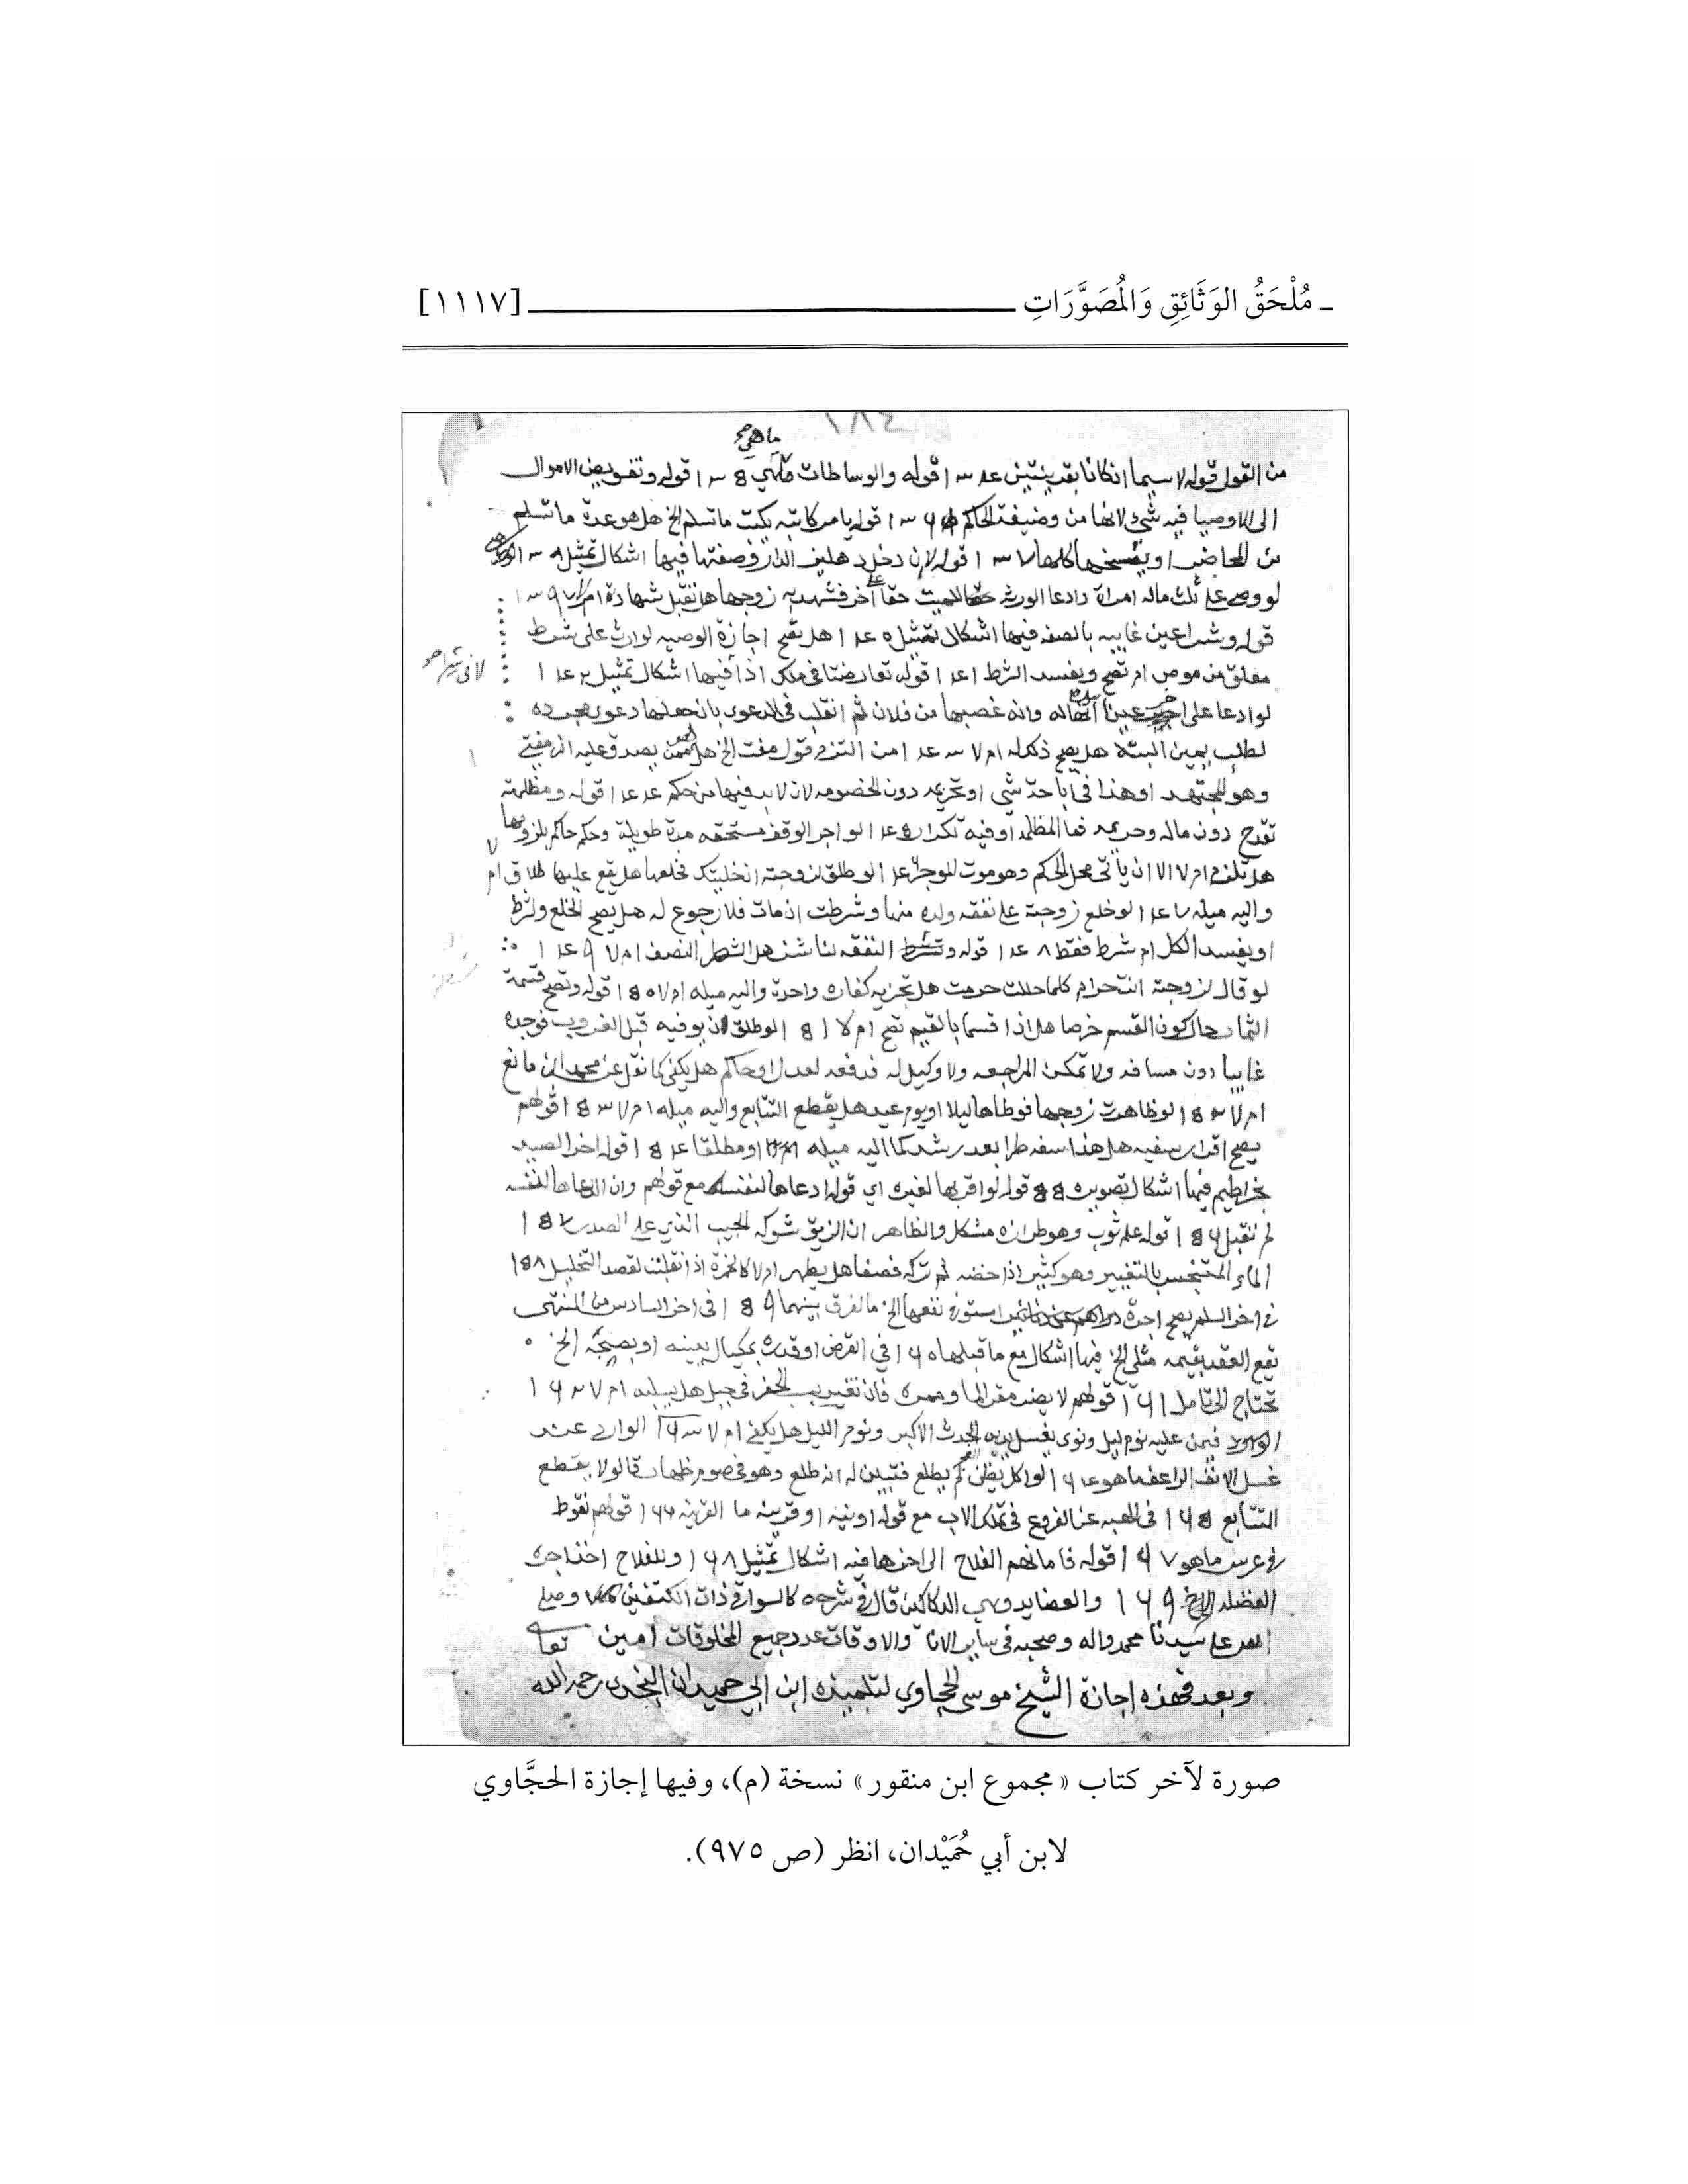 ـ مُلْحَقُ الوَثَائِقِ وَالمُصَوَّرَاتِ [١١١٧]
١٨٤
ما هي صح
من القول قوله لاسيما انكانا بقرينتين ١٣٤ قوله والوساطات ١٣٥ قوله وتفويض الاموال
الى الاوصيا فيه شي لانها من وضيفة الحاكم ١٣٦ قوله يامر كاتبه يكتب ماتسلم الخ هل هو عدة ماتسلم
من المحاضر او ينسخها كلها ١٣٧ قوله لان دخل دهليز الدار وصفتها فيها اشكال تمثيل
لو وصى على ثلث ماله امراة وادعا الورثة حقا على آخر فشهد به زوجها هل تقبل شهادة ام لا ١٣٩
قوله وشراعين غايبه بالصفه فيها اشكال تمثيل ١٤٠ هل تصح اجازة الوصيه لوارث على شرط
معلق من موص ام تصح ويفسد الشرط ١٤١ قوله تعارضتا في ملك اذا فيها اشكال تمثيل ١٤٢
لو ادعا على عينا انها له وانه غصبها من فلان ثم انقلب في الدعوى بان جعلها دعوى مجرده
لطلب يمين البتة هل يصح ذلك له ام لا ١٤٣ من التزم قول مفت الخ هل يصدق عليه انه مفتي
وهو المجتهد او هذا في اباحة شي او تحريمه دون الخصومه لان لا بد فيها من حكم ١٤٤ قوله ومظلمة
تقدح دون ماله وحريمه فما المظلمه او فيه تكرار ١٤٥ لو اجر الوقف مستحقه مدة طويلة وحكم حاكم بلزومها
هل تلزم ام لا الا ان يأتي محل الحكم وهو موت الموجر ١٤٦ لو طلق زوجته هل يقع عليها طلاق ام لا
واليه ميله ١٤٧ لو خلع زوجته على نفقه ولده منها وشرطت ان مات فلا رجوع له هل يصح الخلع والشرط
او يفسد الكل ام شرط فقط ١٤٨ قوله النفقه لناشز هل الشطر النصف ام لا ١٤٩
لو قال لزوجته انت حرام كلما حللت حرمت هل تجزيه كفارة واحدة واليه ميله ام لا ١٥٠ قوله وتصح قسمة
الثمار حال كون القسم خرصا هل اذا قسما بالقيم تصح ام لا ١٥١ لو طلق ان يوفيه قبل الغروب فوجده
غايبا دون مسافه ولا تمكن المراجعه ولا وكيل له فدفعه لعدل او حاكم هل يكفي كما نقل عن محمد ابن مانع
ام لا ١٥٢ لو ظاهرت زوجها فوطاها ليلا او يوم عيد هل يقطع التتابع واليه ميله ام لا ١٥٣ قولهم
يصح اقرار سفيه هل هذا سفه طرا بعد رشد كما اليه ميله او مطلقا ١٥٤ قوله اخر الصيد
بخراطيم فيها اشكال تصوير ١٥٥ قوله لو اقر بها لغيره اي قوله ادعاها لنفسه مع قولهم وان ادعاها لنفسه
لم تقبل ١٥٦ قوله علم ثوب وهو طرازه مشكل والظاهر ان الزيق شوكه الجيب الذي على الصدر ١٥٧
الماء المتنجس بالتغيير وهو كثير اذا خضه ثم تركه فصفا هل يطهر ام لا كالخمرة اذا نقلت لقصد التخليل ١٥٨
في اخر السلم يصح اجرة استوفي نفعها الخ ما الفرق بينهما ١٥٩ في اخر السادس من المنتهى
تقع العقد بقيمه مثلي الخ فيها اشكال مع ما قبلها ١٦٠ في القرض او قدره بمكيال بعينه او بصنجة الخ
تحتاج الى تامل ١٦١ قولهم لا يضر مقر الما وممره فان تغير بسبب الحفر في جبل هل يسلبه ام لا ١٦٢
فيمن عليه نوم ليل ونوى بغسل يديه الحدث الاكبر ونوم الليل هل يكفي ام لا ١٦٣ الوارد عند
غسل الانف الراعف ما هو ١٦٤ لو اكل يظن لم يطلع فتبين له انه طلع وهو في صوم ظهار قالوا لا يقطع
التتابع ١٦٥ في الهبه عن الفروع في تملك الاب مع قوله او نيه او قرينه ما القرينه ١٦٦ قولهم نقوط
في عرس ما هو ١٦٧ قوله فا ما نهم الفلاح الى اخرها فيه اشكال تمثيل ١٦٨ وللفلاح اخذ اجرة
الفضله الخ ١٦٩ والعضايد وهي الدكاكين قال في شرحه كالسوار في ذات الكتفين وصلى
الله على سيدنا محمد واله وصحبه في ساير الانا والاوقات عدد جميع المخلوقات امين
وبعد فهذه اجازة الشيخ موسى الحجاوي لتلميذه ابن ابي حميدان النجدي رحمه الله تعا
صورة لآخر كتاب « مجموع ابن منقور » نسخة (م)، وفيها إجازة الحجَّاوي
لابن أبي حُمَيْدان، انظر (ص ٩٧٥).